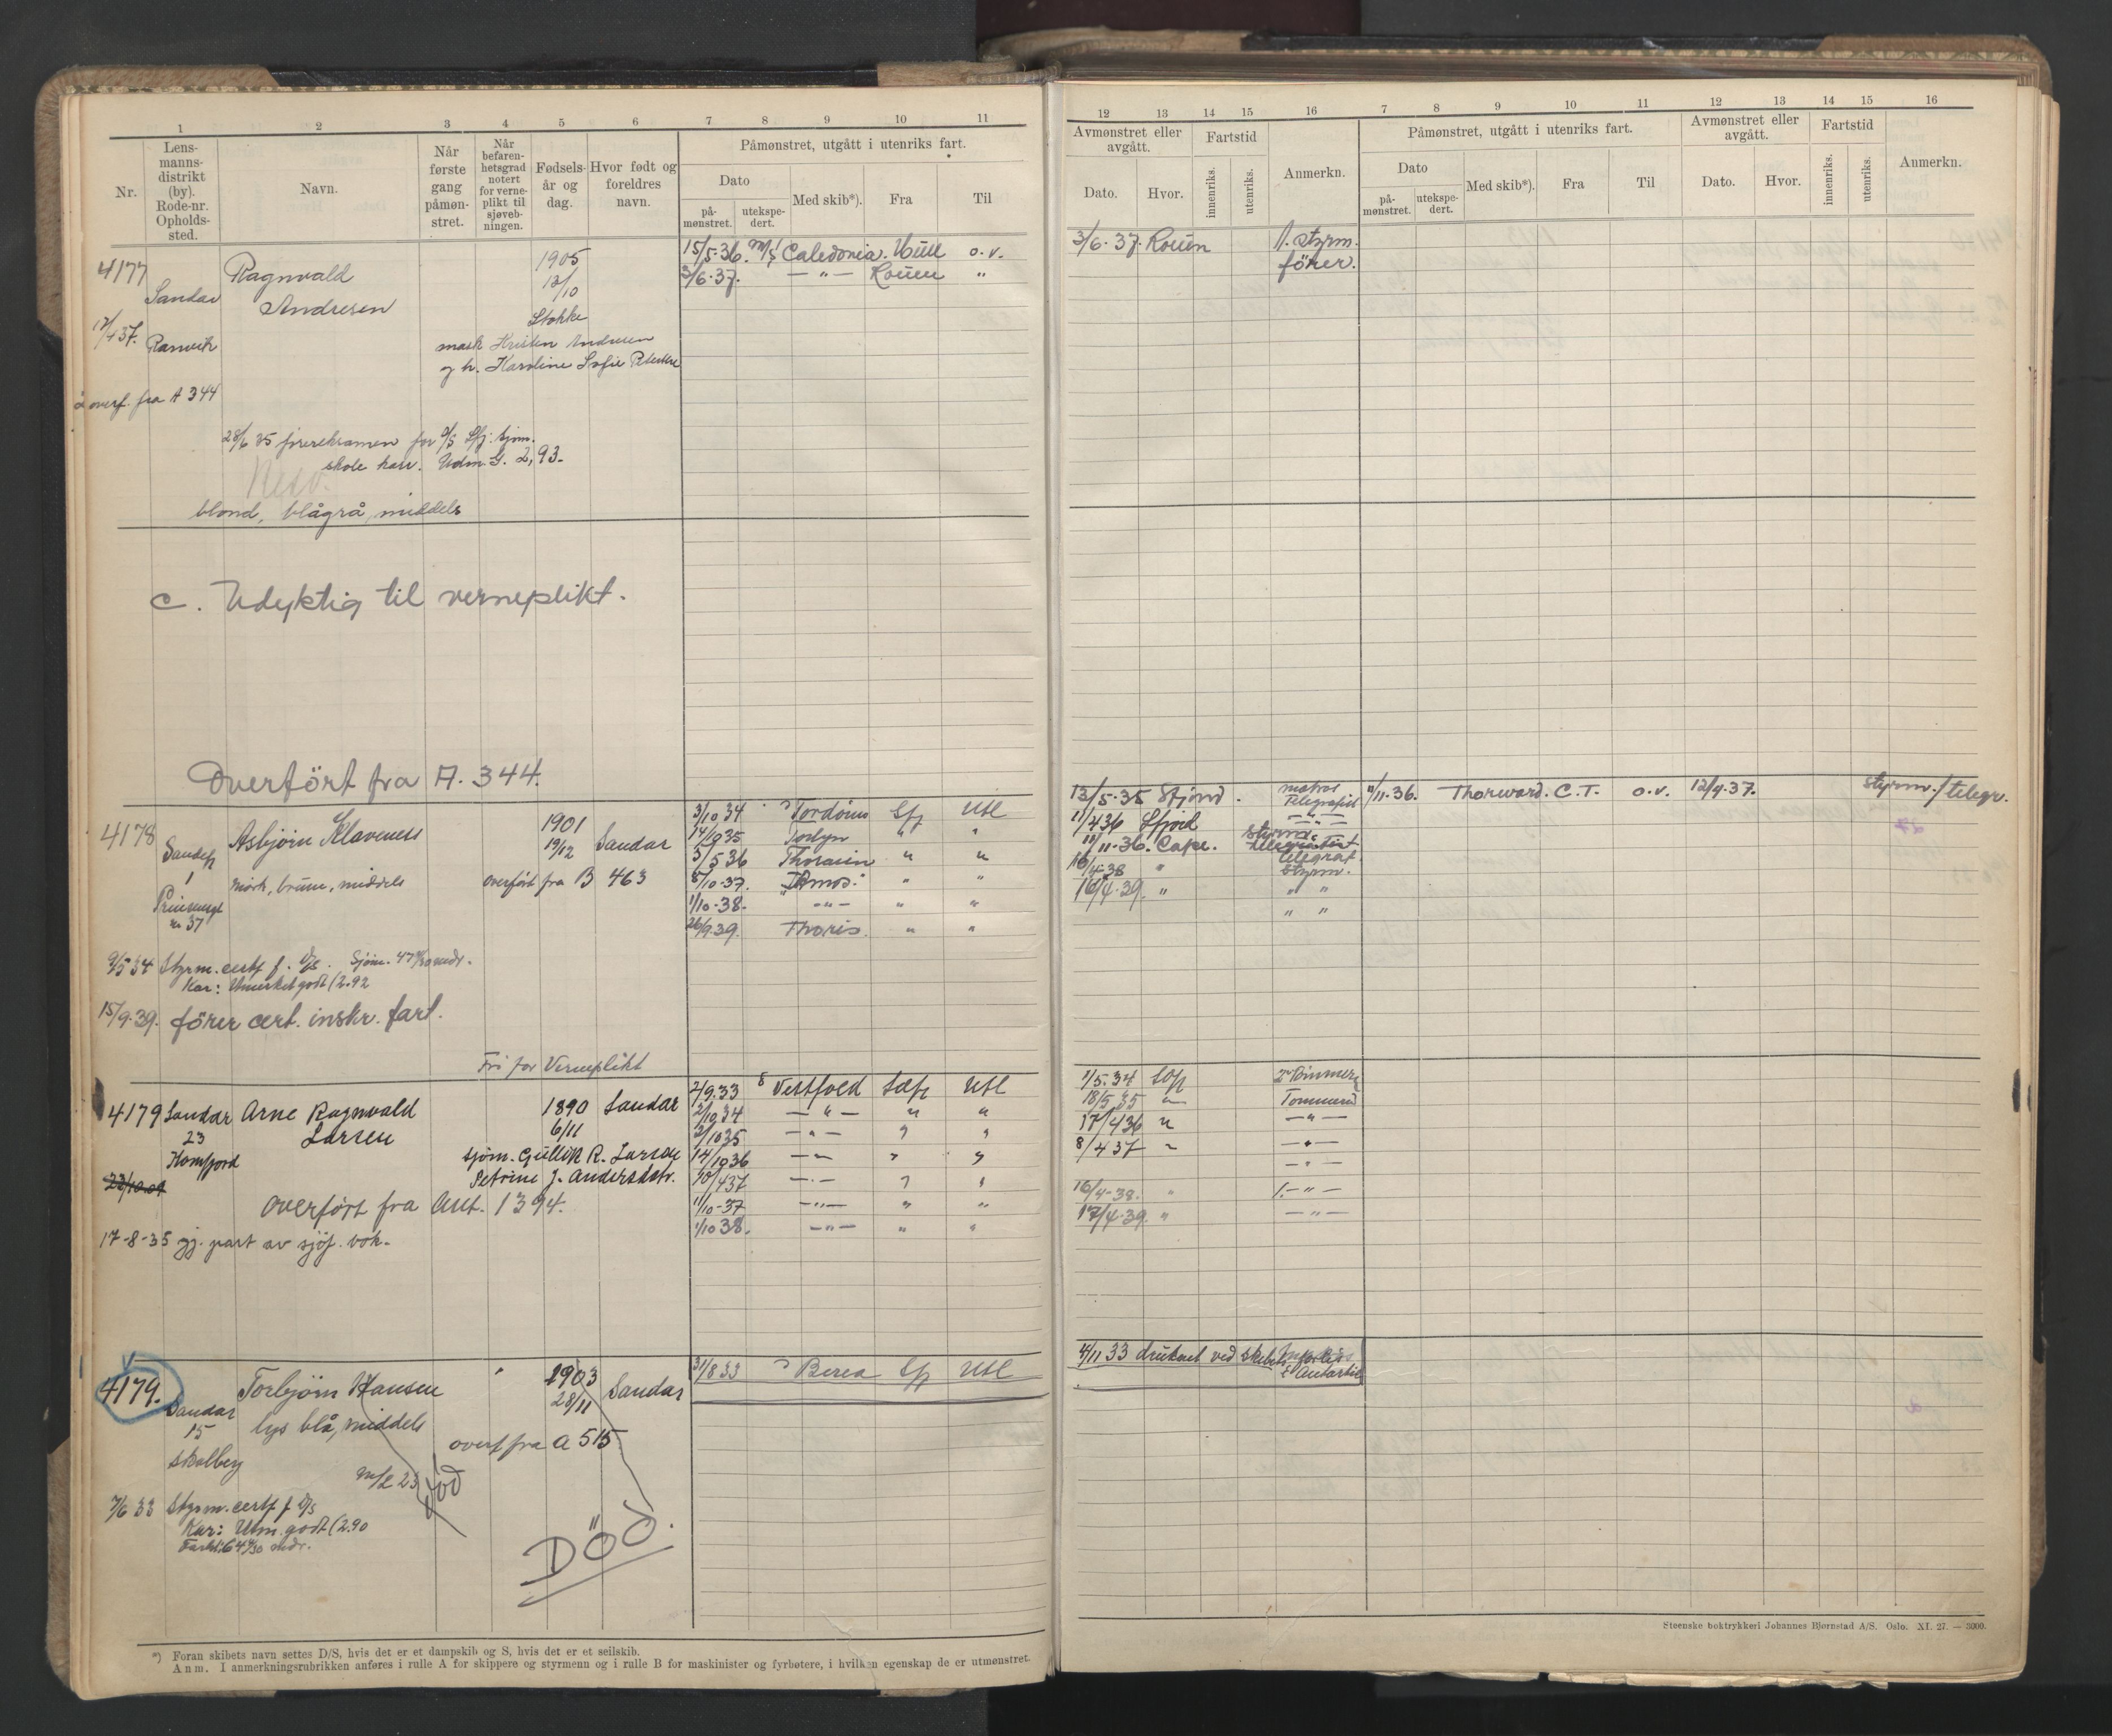 1 2 3 4 5 6 7 8 9 10 11
Nr.
Lens-
manns-
distrikt
(by).
Rode-nr.
Opholds-
sted.
Navn.
Når
første
gang
påmøn-
stret.
Når
befaren-
hetsgrad
notert
for verne-
plikt til
sjøveb-
ningen.
Fødsels-
år og
dag.
Hvor født og
foreldres
navn.
Påmønstret, utgått i utenriks fart.
Dato
på-
mønstret.
utekspe-
dert.
Med skib*).
Fra
Til
4177
Sandar
Ragnvald
Andresen
1905
13/10
Stokke
15/5-36. M/S Caledonia. Hull o.v.
3/6-37. —"— Rouen "
12/4 37. Ranvik
mask Kristen Andresen
og h. Karoline Sofie
overf. fra A 344
28/6 35 førereksamen for D/S Sfj. sjøm.
skole kar. Udm. G. 2,93-
blond, blågrå, middels
C. Udyktig til verneplikt.
Overført fra A. 344.
4178
Sandefj
1
Prinsensgt
nr 37
Asbjørn Klaveness
1901
19/12
Sandar
mørk, brune, middels
overført fra B 463
3/10 34 Tordönn Sfj Utl
14/9 35 Torlyn " "
5/5 36 Thorarin " "
5/10-37. Thmos. " "
1/10-38. —"— " "
26/9 39. Thoris " "
9/5 34 Styrm. certf f. D/S. Sjøm. mdr.
Kar: Utmerket godt (2.92
15/9-39. fører cert. inskr. fart.
Fri for Verneplikt
4179
Sandar
23
Arne Ragnvald
Larsen
1890
6/11
Sandar
sjøm. Gullik R. Larsen
Petrine J. Andersdatr.
23/10.09
overført fra Ant. 1394.
17-8-35 gj. part av sjøf. bok.
2/9.33 Vestfold Sefj Utl
2/10 34 —"— " "
2/10 35 —"— " "
14/9 36 —"— " "
10/4 37 —"— " "
1/10-37 —"— " "
1/10 38. —"— " "
4179.
Sandar
15
Skolberg
Torbjørn Hansen
lys blå, middels
1903
28/11
Sandar
overf fra A 515
m/L 23
död
31/8 33 Berea Sfj Utl
7/6 33 Styrm. certf f D/S
Kar: Utm. godt (2.90
DÖD.
*) Foran skibets navn settes D/S, hvis det er et dampskib og S, hvis det er et seilskib.
Anm. I anmerkningsrubrikken anføres i rulle A for skippere og styrmenn og i rulle B for maskinister og fyrbøtere, i hvilken egenskap de er utmønstret.
12 13 14 15 16 7 8 9 10 11 12 13 14 15 16
Avmønstret eller
avgått.
Dato.
Hvor.
Fartstid
innenriks.
utenriks.
Anmerkn.
Påmønstret, utgått i utenriks fart.
Dato
på-
mønstret.
utekspe-
dert.
Med skib*).
Fra
Til
Avmønstret eller
avgått.
Dato.
Hvor.
Fartstid
innenriks.
utenriks.
Anmerkn.
3/6-37. Rouen 1. styrm.
fører.
13/5-35 Sfjord. matros
Telegrafist
11/11-36. Thorward. C.T. o.v. 12/4-37. styrm./telegr.
11/4 36 Sfjord —"—
11/11-36. Cape. styrm.
16/4-38 " telegraf.
styrm.
16/4-39. " " "
" "
1/5.34 Sefj
18/5 35 " Tømmerm
17/4 36 " —"—
8/4 37 " —"—
—"—
16/4-38. " 1. —"—
17/4-39. " —"—
4/11 33 druknet ved skibets forlis
i Antarktis
Steenske boktrykkeri Johannes Bjørnstad A/S. Oslo. XI. 27. — 3000.